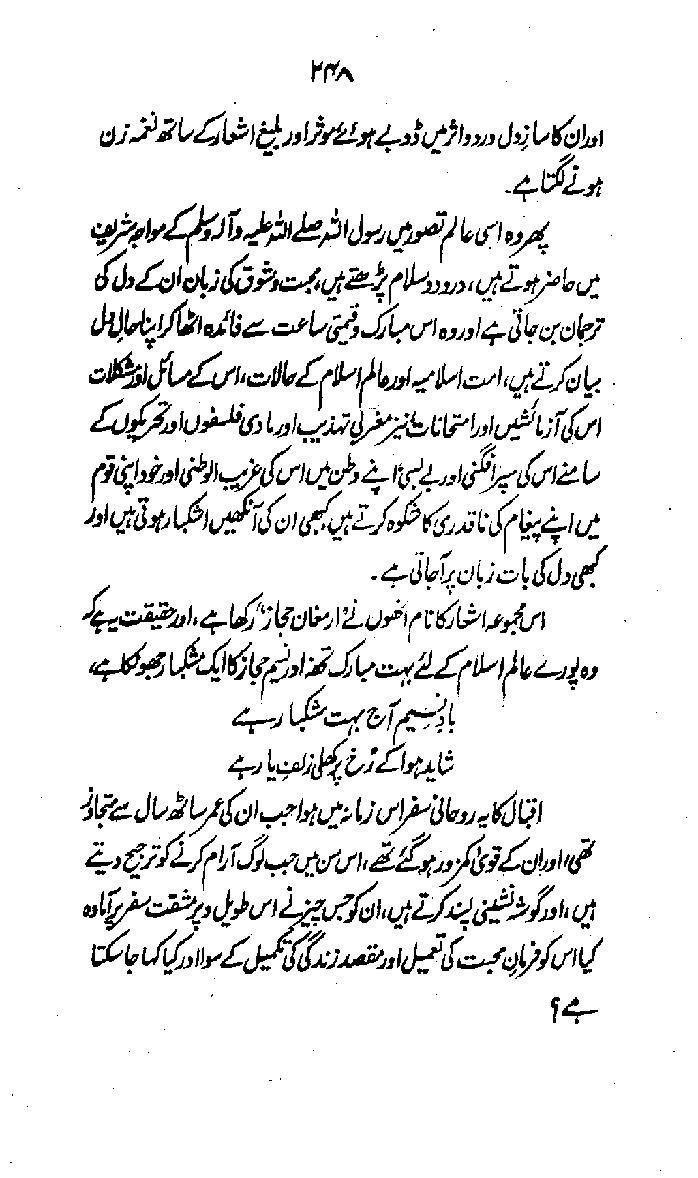 ۲۴۸
اور ان کا سازِ دل درد و اثر میں ڈوبے ہوئے موثر اور بلیغ اشعار کے ساتھ نغمہ زن
ہونے لگتا ہے۔
پھر وہ اسی عالم تصور میں رسول اللہ صلے اللہ علیہ وآلہ وسلم کے مواجہ شریف
میں حاضر ہوتے ہیں، درود و سلام پڑھتے ہیں، محبت و شوق کی زبان ان کے دل کی
ترجمان بن جاتی ہے اور وہ اس مبارک و قیمتی ساعت سے فائدہ اٹھا کر اپنا حالِ دل
بیان کرتے ہیں، امت اسلامیہ اور عالم اسلام کے حالات، اس کے مسائل اور مشکلات
اس کی آزمائشیں اور امتحانات نیز مغربی تہذیب اور مادی فلسفوں اور تحریکوں کے
سامنے اس کی سپر افگنی اور بے بسی، اپنے وطن میں اس کی غریب الوطنی اور خود اپنی قوم
میں اپنے پیغام کی ناقدری کا شکوہ کرتے ہیں، کبھی ان کی آنکھیں اشکبار ہوتی ہیں اور
کبھی دل کی بات زبان پر آجاتی ہے۔
اس مجموعہ اشعار کا نام انھوں نے "ارمغان حجاز" رکھا ہے، اور حقیقت یہ ہے کہ
وہ پورے عالم اسلام کے لئے بہت مبارک تحفہ اور نسیم حجاز کا ایک مشکبار جھونکا ہے،
بادِ نسیم آج بہت مشکبار ہے
شاید ہوا کے رُخ پر کھلی زلفِ یار ہے
اقبال کا یہ روحانی سفر اس زمانہ میں ہوا جب ان کی عمر ساٹھ سال سے متجاوز
تھی، اور ان کے قویٰ کمزور ہو گئے تھے، اس سن میں جب لوگ آرام کرنے کو ترجیح دیتے
ہیں، اور گوشہ نشینی پسند کرتے ہیں، ان کو جس چیز نے اس طویل و پر مشقت سفر پر آمادہ
کیا اس کو فرمانِ محبت کی تعمیل اور مقصد زندگی کی تکمیل کے سوا اور کیا کہا جا سکتا
ہے؟